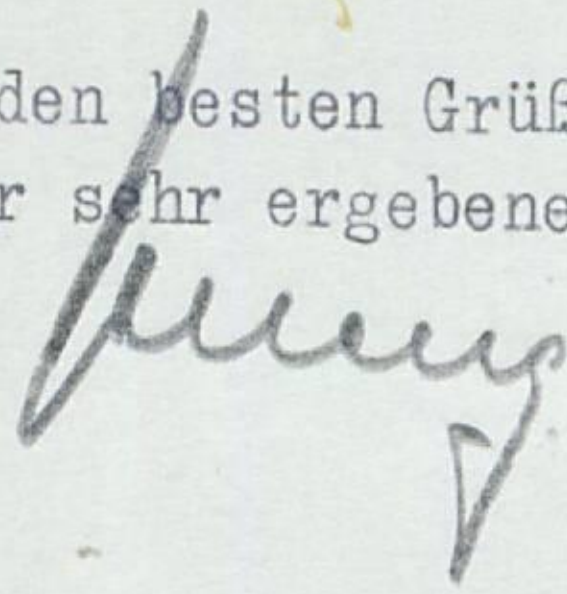 den besten Grüß
r sehr ergebene